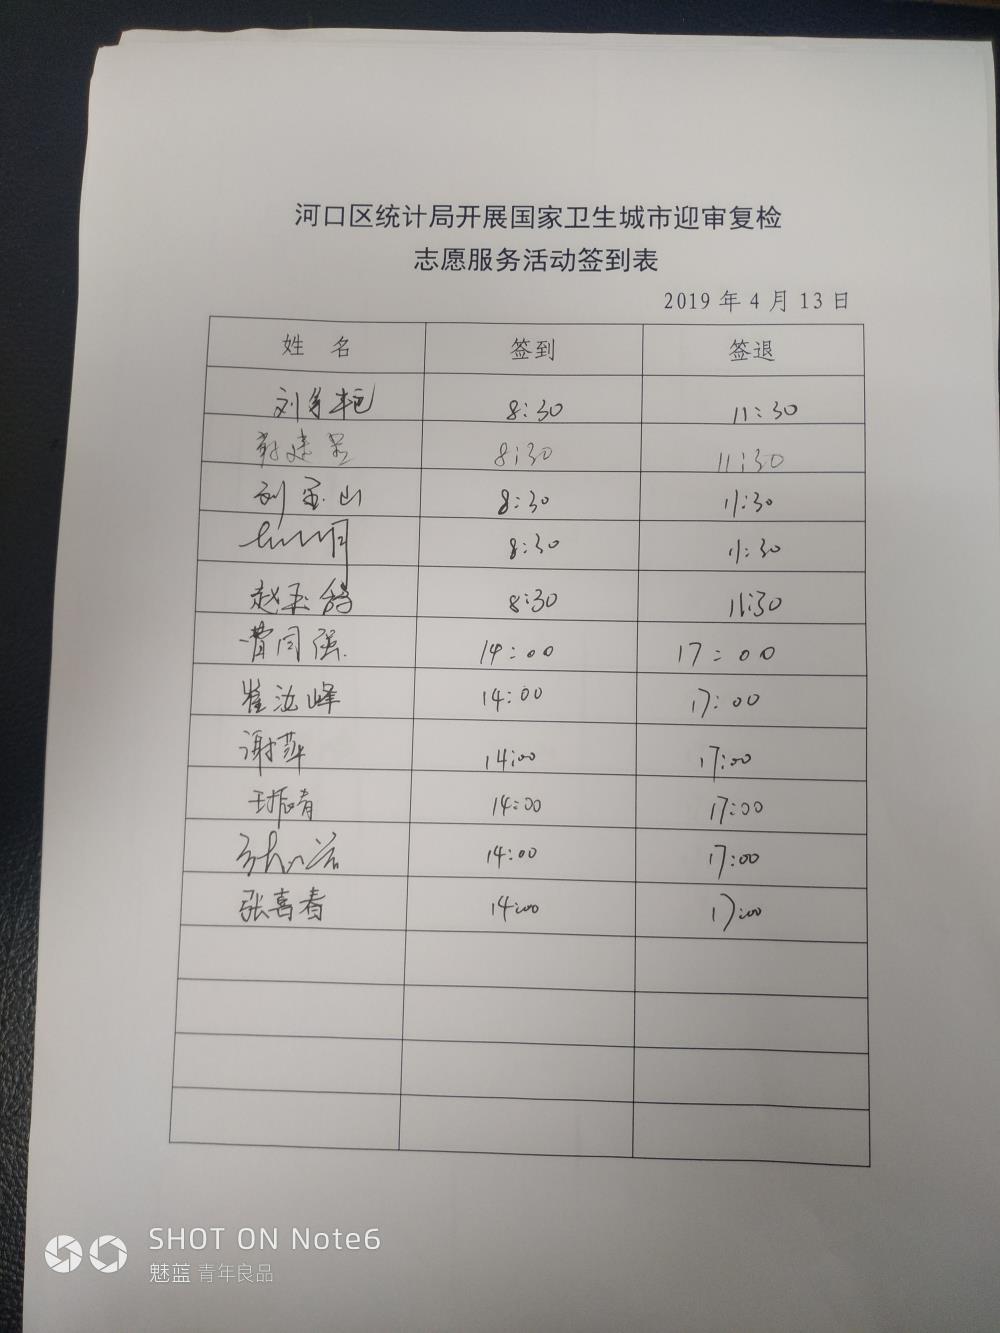 河口区统计局开展国家卫生城市迎审复检
志愿服务活动签到表
2019年4月13日
姓 名 签到 签退
8:30 11:30
8:30 11:30
刘金山 8:30 11:30
8:30 11:30
赵玉 8:30 11:30
曹同强 14:00 17:00
崔汝峰 14:00 17:00
谢萍 14:00 17:00
14:00 17:00
14:00 17:00
张喜春 14:00 17:00
SHOT ON Note6
魅蓝 青年良品